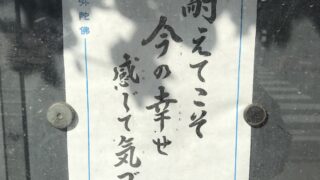 耐えてこそ
今の幸せ
感じて気づ
弥陀佛